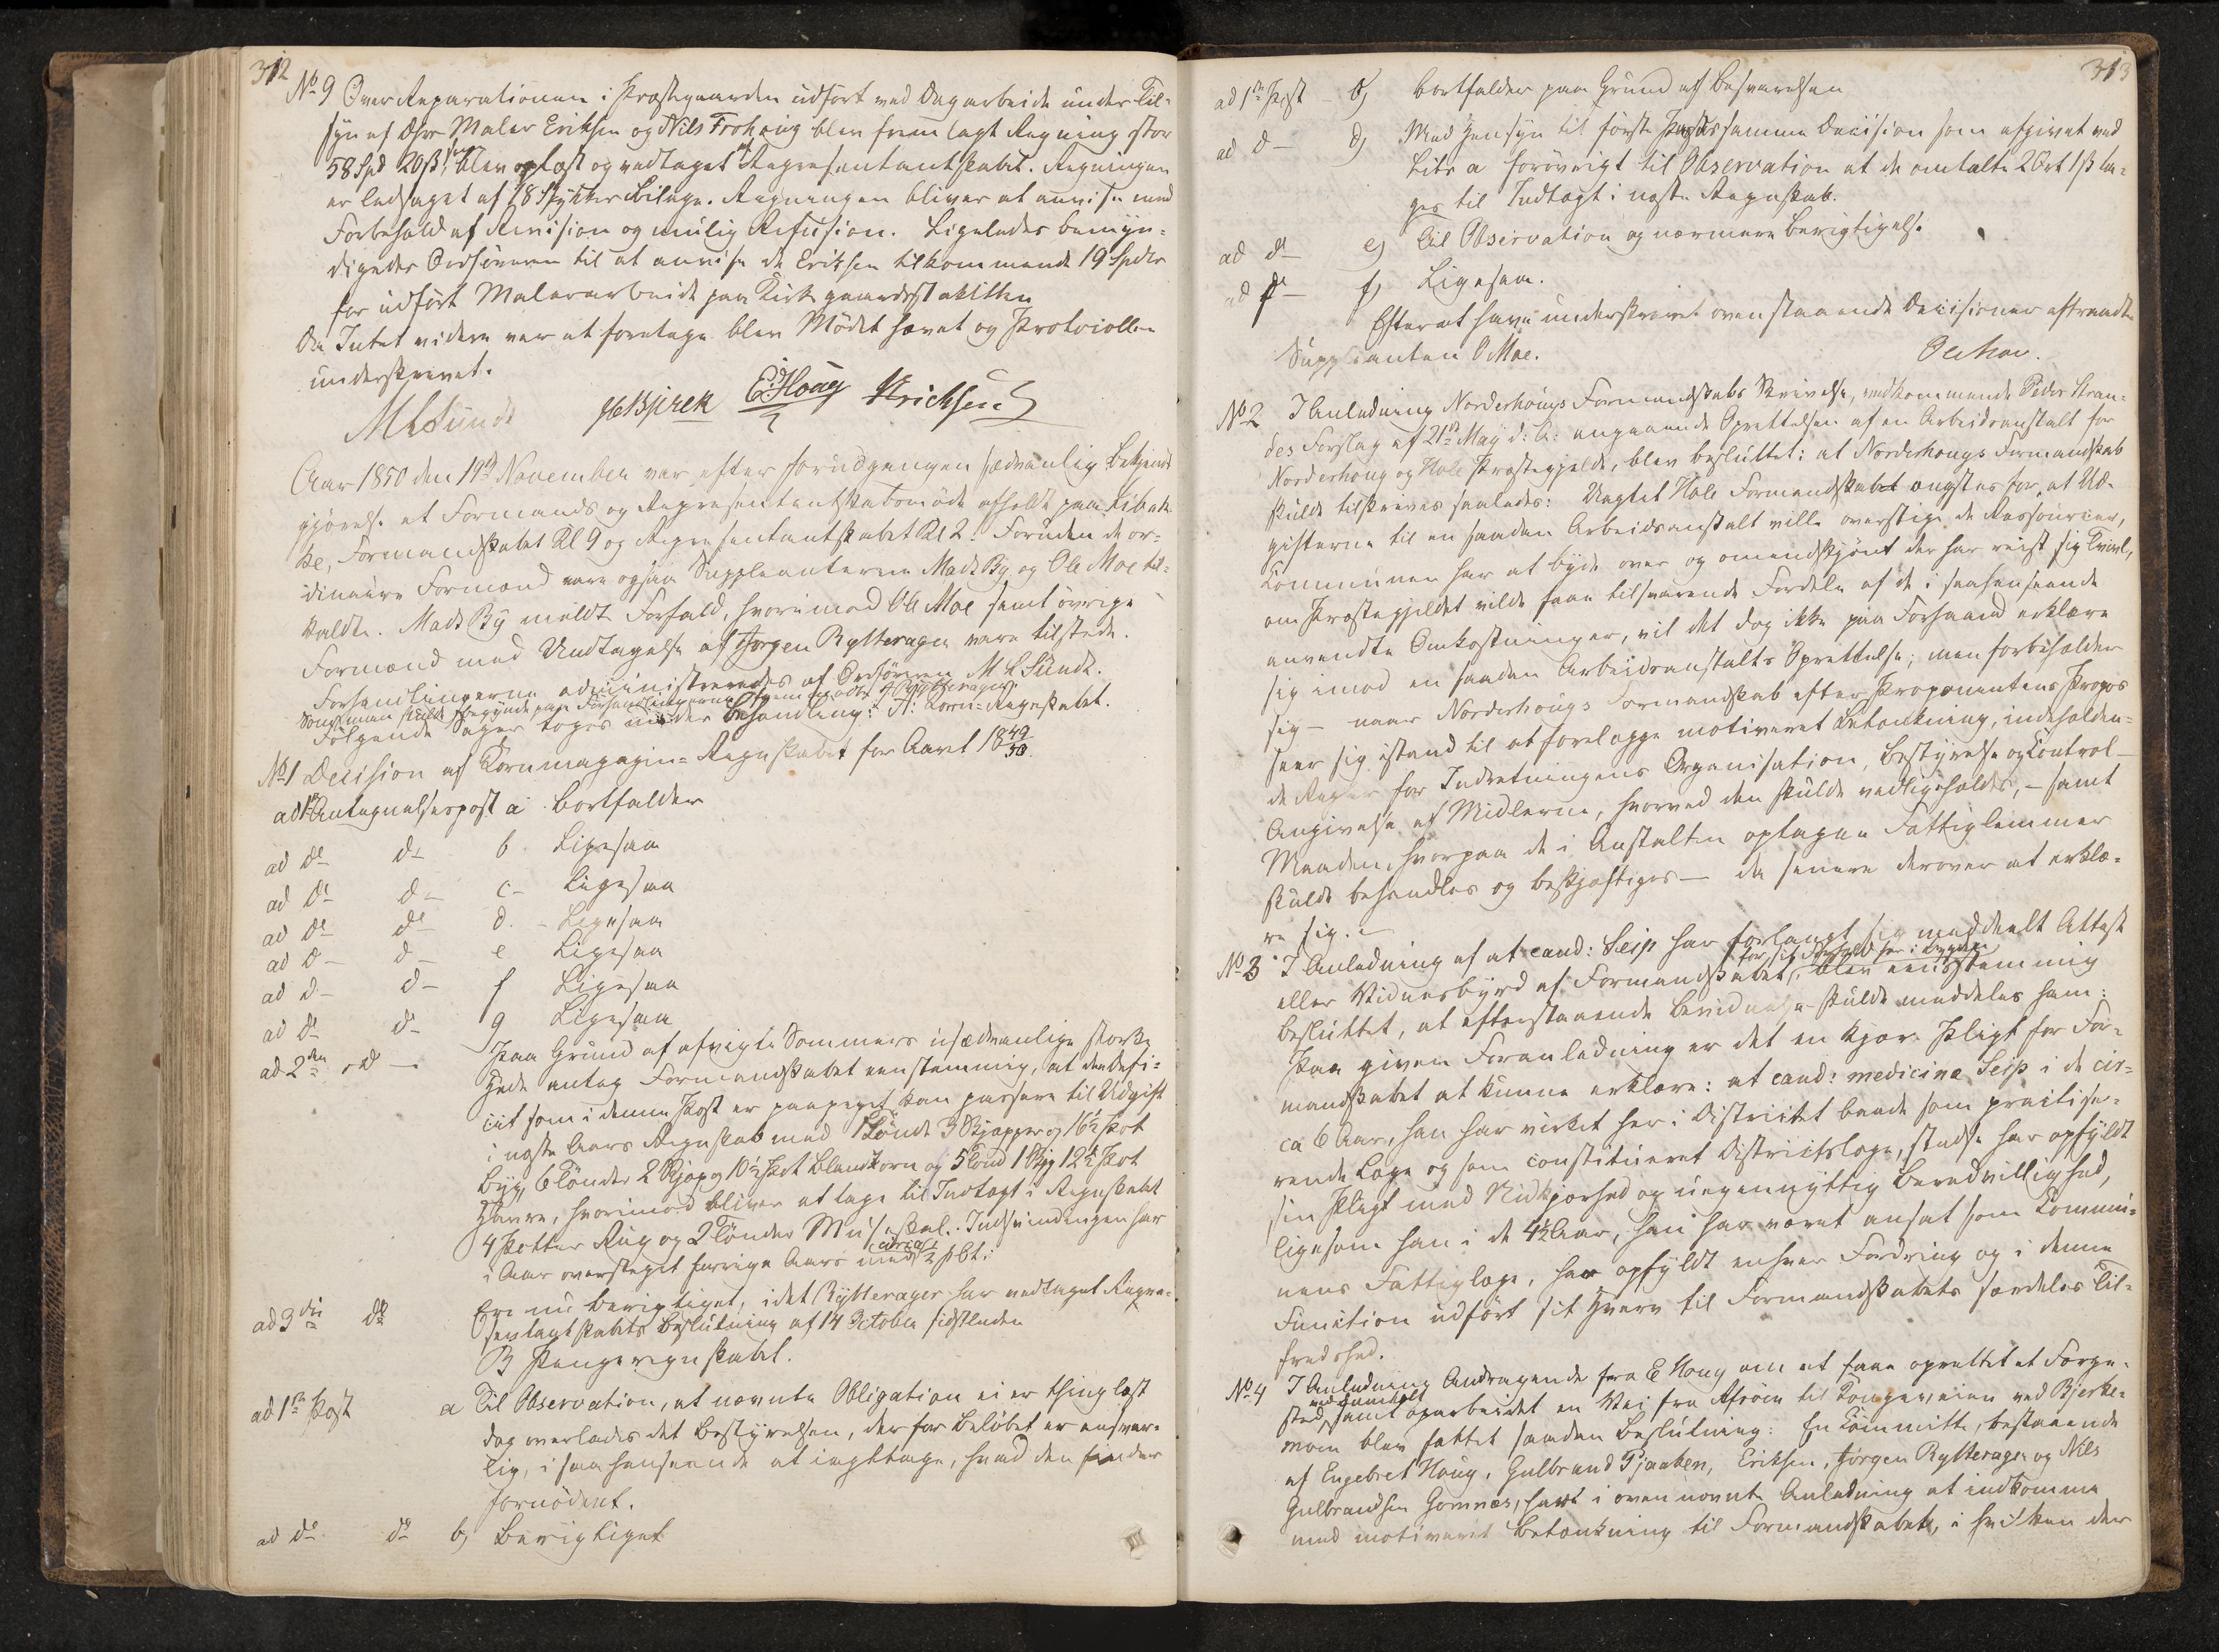 312
No 9 Over Reparationen i Præstegaarden udført ved Dagarbeide under Til-
syn af Dhrr Maler Eriksen og Nils Frohaug blev fremlagt Regning stor
58 Spd 20 ß, som blev oplæst og vedtaget af Repræsentantskabet. Regningen
er ledsaget af 18 Stykker Bilage. Regningen bliver at anvise med
Forbehold af Revision og mulig Refusion. Ligeledes bemyn-
digedes Ordføreren til at anvise de Eriksen tilkommende 19 Spdlr
for udført Malerarbeide paa Kirkegaardsstakitten
Da Intet videre var at foretage blev Mødet hævet og Protocollen
underskrevet.
M L Sundt P Bjerk E. Houg Erichsen
Aar 1850 den 19de November var efter forudgangen sædvanlig Bekjendt-
gjørelse et Formands og Repræsentantskabsmøde afholdt paa
Formandskabet Kl 9 og Repræsentantskabet Kl 2. Foruden de or-
dinaire Formænd vare ogsaa Suppleanterne Mads By og Ole Moe til-
kaldte. Mads By meldte Forfald, hvorimod Ole Moe samt øvrige
Formænd med Undtagelse af Jørgen Rytterager vare tilstede.
Forhandlingerne administreredes af Ordføreren M L Sundt.
Som man skulde begynde paa Forhandlingerne fremmødte J. Rytterager.
Følgende Sager toges under Behandling: A: Korn-Regnskabet.
No 1 Decision af Kornmagazin-Regnskabet for Aaret 1849/50.
ad 1ste Antegnelsespost a bortfalder
ad do do b. Ligesaa
ad do do c - Ligesaa
ad do do d. - Ligesaa
ad do do e Ligesaa
ad do do f Ligesaa
ad do do g Ligesaa
ad 2den do Paa Grund af afvigte Sommers usædvanlige stærke
Hede antog Formandskabet eenstemmig, at den Defi-
cit som i denne Post er paapeget kan passere til Udgift
i næste Aars Regnskab med 1 Tønde 3 Skjæpper og 16½ Pot
Byg, 6 Tønder 2 Skjæp og 10½ Pot Blandkorn og 5 Tønd 1 Skjp 12½ Pot
Havre, hvorimod bliver at tage til Indtægt i Regnskabet
4 Potter Rug og 2 Tønder Indsvindingen har
i Aar oversteget forrige Aars med circa ½ pCt:
ad 3die do Ere nu berigtiget, idet Rytterager har vedtaget Repræ-
sentantskabets Beslutning af 14 October sidstleden
B Pengeregnskabet.
ad 1ste Post a Til Observation, at nævnte Obligation ei er thinglæst
dog overlades det Bestyrelsen, der for Beløbet er ansvar-
lig, i saa henseende at iagttage, hvad den finder
fornødent.
ad do do b) Berigtiget
313
ad 1ste Post c) bortfalder paa Grund af Besvarelsen
ad do d) Med Hensyn til første Postes samme Decision som afgivet ved
Litr a forøvrigt til Observation at de omtalte 2 Ort 1 ß ta-
ges til Indtægt i næste Regnskab.
ad do e) Til Observation og nærmere Berigtigelse
ad do f) Ligesaa.
Efterat have underskrevet ovenstaaende Decisioner aftraadte
Suppleanten O Moe.
O Moe.
No 2 I Anledning Norderhougs Formandskabs Skrivelse, vedkommende Peder Stran-
des Forslag af 21de May d: A: angaaende Oprettelsen af en Arbeidsanstalt for
Norderhoug og Hole Præstegjelde, blev besluttet: at Norderhougs Formandskab
skulde tilskrives saaledes: Uagtet Hole Formandskabet ængstes for, at Ud-
gifterne til en saadan Arbeidsanstalt ville overstige de Ressourcer,
Communen har at byde over og omendskjønt der har reist sig Tvivl,
om Præstegjeldet vilde faae tilsvarende Fordele af de i saahenseende
anvendte Omkostninger, vil det dog ikke paa Forhaand erklære
sig imod en saadan Arbeidsanstalts Oprettelse; men forbeholder
sig – naar Norderhougs Formandskab efter Proponentens Propos
seer sig istand til at forelægge motiveret Betænkning, indeholden-
de Regler for Indretningens Organisation, Bestyrelse og Control –
Angivelse af Midlerne, hvorved den skulde vedligeholdes, – samt
Maaden, hvorpaa de i Anstalten optagne Fattiglemmer
skulde behandles og beskjæftiges – da senere derover at erklæ-
re sig. –
No 3 I Anledning af at cand: Seip har forlangt sig meddeelt Attest
eller Vidnesbyrd af Formandskabet, for sit Forhold her i Bygden blev eenstemmig
besluttet, at efterstaaende Bevidnelse skulde meddeles ham:
Paa given Foranledning er det en kjær Pligt for For-
mandskabet at kunne erklære: at cand: medicinæ Seip i de cir-
ca 6 Aar, han har virket her i Districtet baade som practise-
rende Læge og som constitueret Districtslæge, stedse har opfyldt
sin Pligt med Nidkjærhed og uegennyttig Beredvillighed,
ligesom han i de 4½ Aar, han har været ansat som Commu-
nens Fattiglæge, har opfyldt enhver Fordring og i denne
Function udført sit Hverv til Formandskabets særdeles Til-
fredshed.
No 4 I Anledning Andragende fra E Houg om at faae oprettet et Færge-
sted ved samt oparbeidet en Vei fra Afsøen til Kongeveien ved Bjerke-
moen blev fattet saadan Beslutning: En Committe, bestaaende
af Engebret Houg, Gulbrand Tjaaben, Eriksen, Jørgen Rytterager og Nils
Gulbrandsen Gomnæs, havt i ovennævnte Anledning at indkomme
med motiveret Betænkning til Formandskabet, i hvilken der